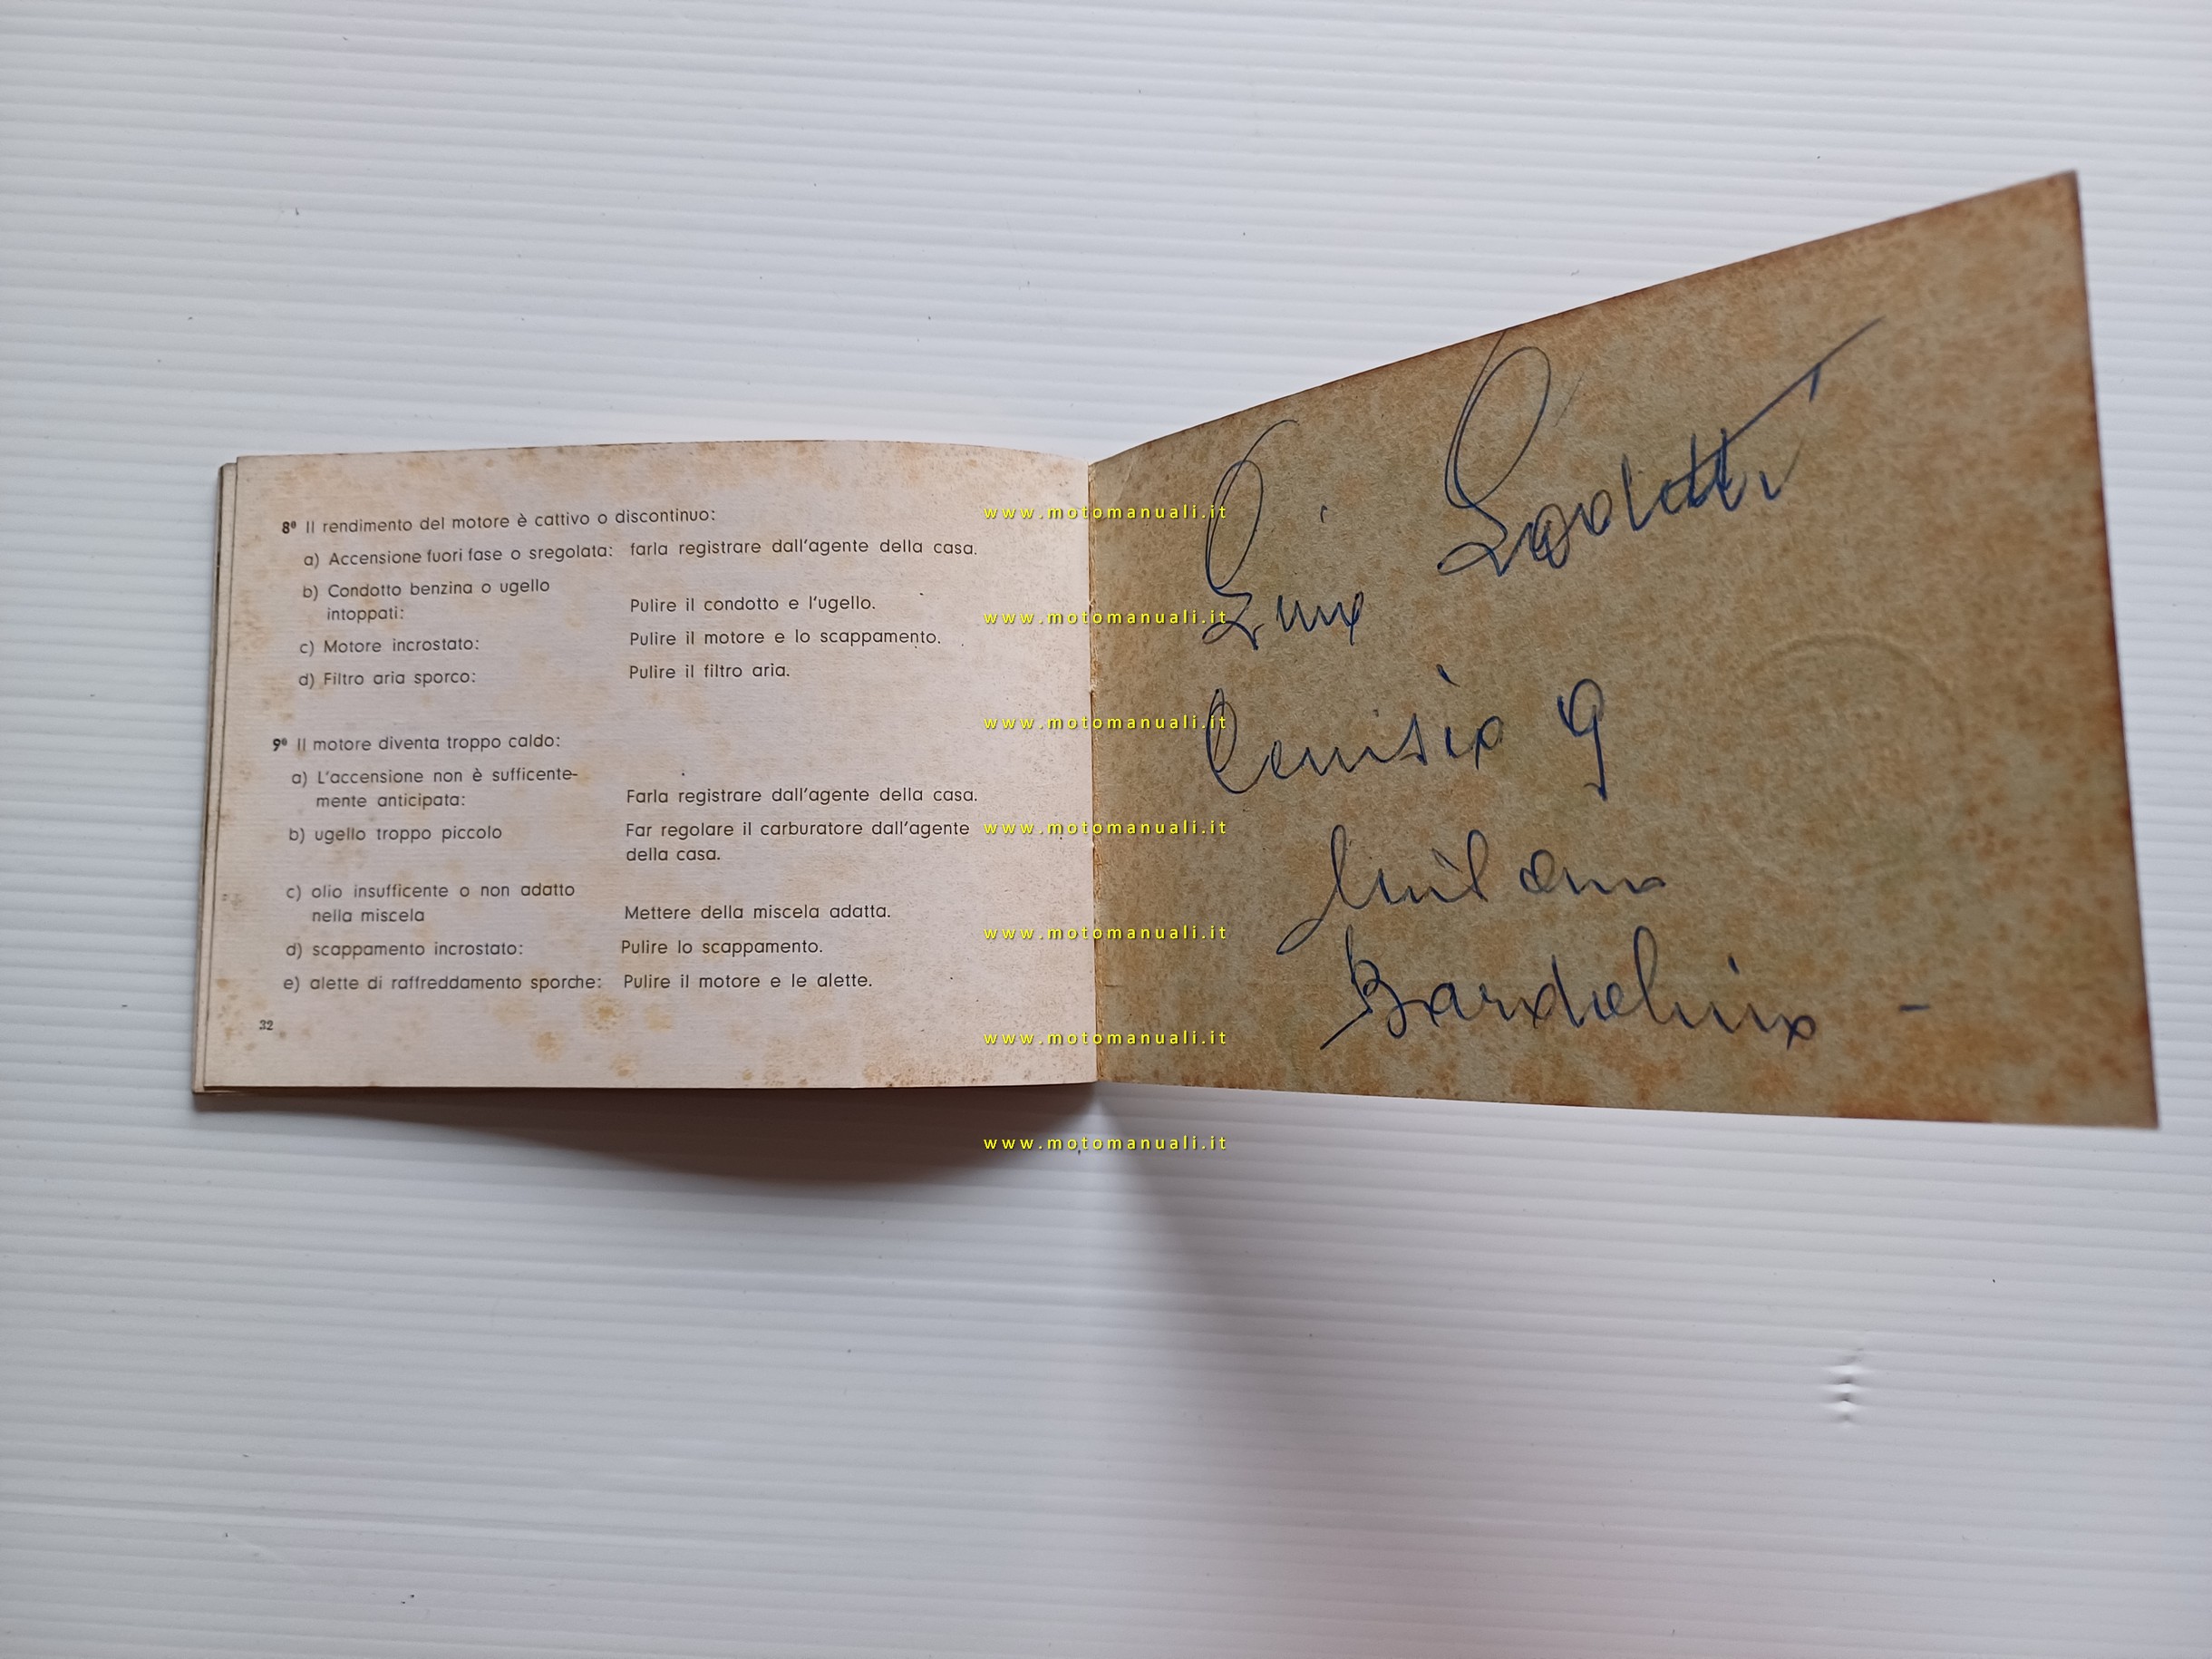 8º Il rendimento del motore è cattivo o discontinuo:
a) Accensione fuori fase o sregolata: farla registrare dall'agente della casa.
b) Condotto benzina o ugello
intoppati: Pulire il condotto e l'ugello.
c) Motore incrostato: Pulire il motore e lo scappamento.
d) Filtro aria sporco: Pulire il filtro aria.
9º Il motore diventa troppo caldo:
a) L'accensione non è sufficente-
mente anticipata: Farla registrare dall'agente della casa.
b) ugello troppo piccolo Far regolare il carburatore dall'agente
della casa.
c) olio insufficente o non adatto
nella miscela Mettere della miscela adatta.
d) scappamento incrostato: Pulire lo scappamento.
e) alette di raffreddamento sporche: Pulire il motore e le alette.
32
Cenisio 9
Milano
Bardolino -
www.motomanuali.it
www.motomanuali.it
www.motomanuali.it
www.motomanuali.it
www.motomanuali.it
www.motomanuali.it
www.motomanuali.it